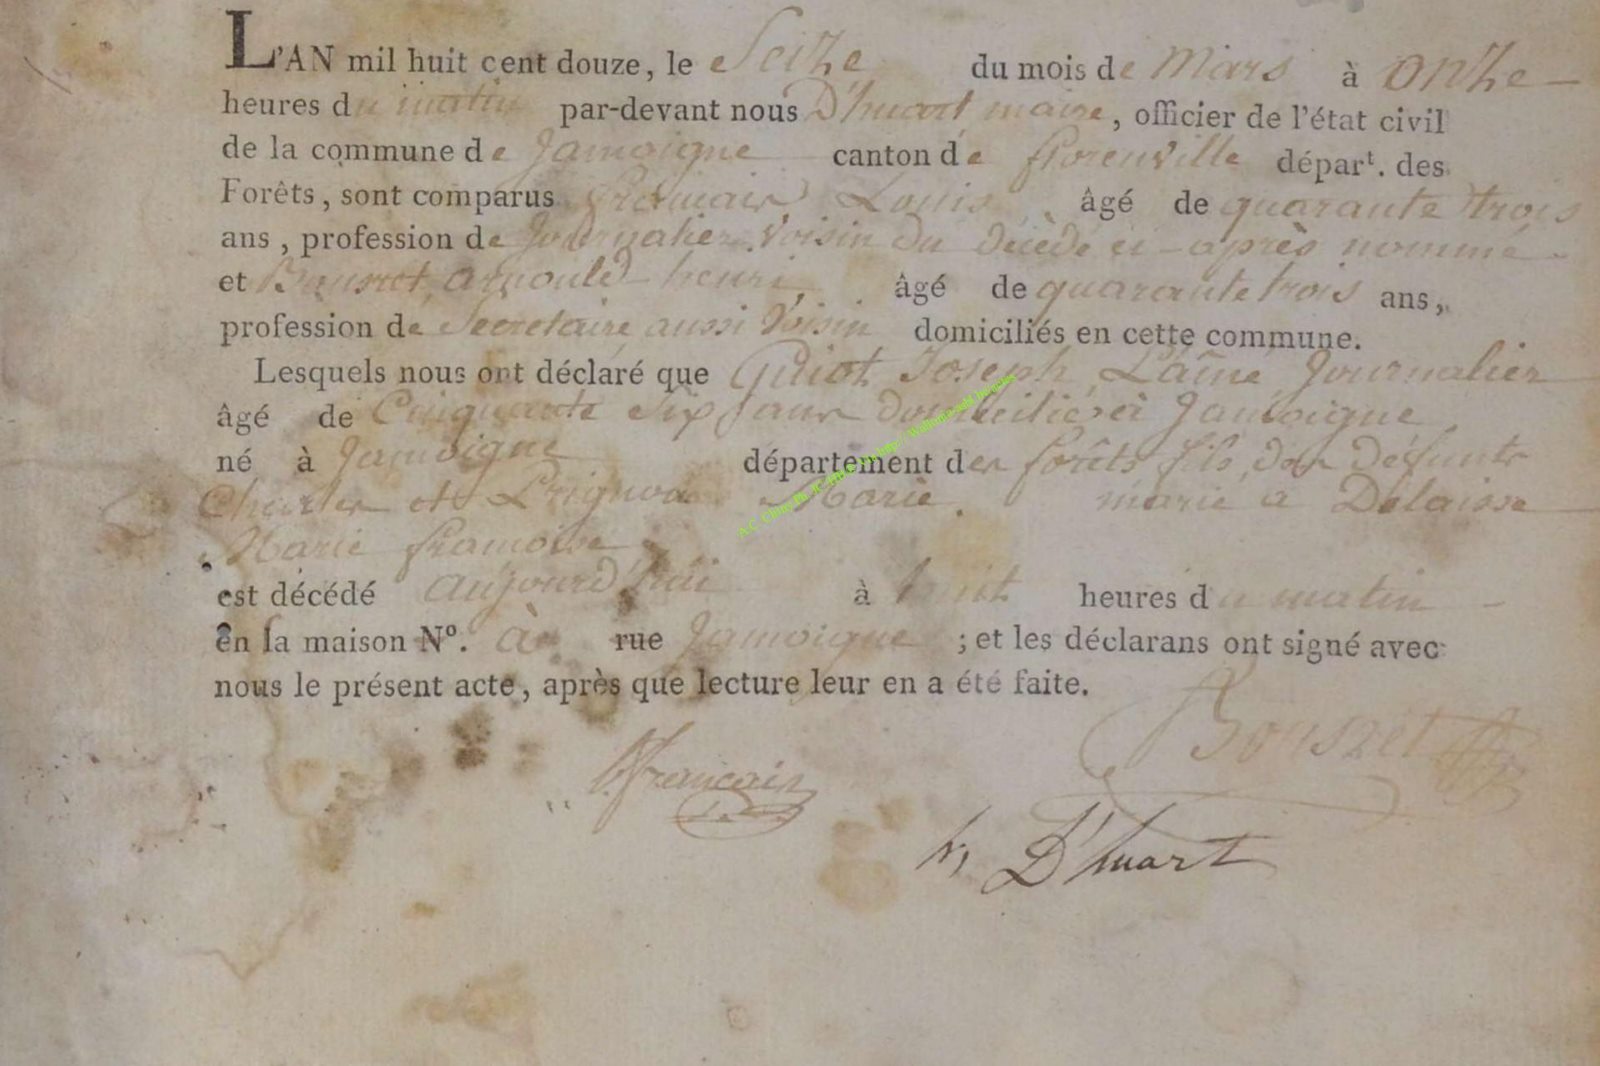 L'AN mil huit cent douze, le Seize du mois de Mars à onze
heures du matin par-devant nous D'huart maire, officier de l'état civil
de la commune de Jamoigne canton de florenville départ. des
Forêts, sont comparus Louis âgé de quarante trois
ans, profession de Journalier Voisin du décédé ci-après nommé
et arnould henri, âgé de quarante trois ans,
profession de Secretaire aussi Voisin domiciliés en cette commune.
Lesquels nous ont déclaré que Guiot Joseph L'aîné Journalier
âgé de Cinquante Six ans domicilié à Jamoigne
né à Jamoigne département des forêts fils des défunts
Charles et Marie. marié a Delaisse
Marie francoise
est décédé aujourd'hui à huit heures du matin
en sa maison Nº. rue Jamoigne ; et les déclarans ont signé avec
nous le présent acte, après que lecture leur en a été faite.
Bousret
francain
h, D'huart